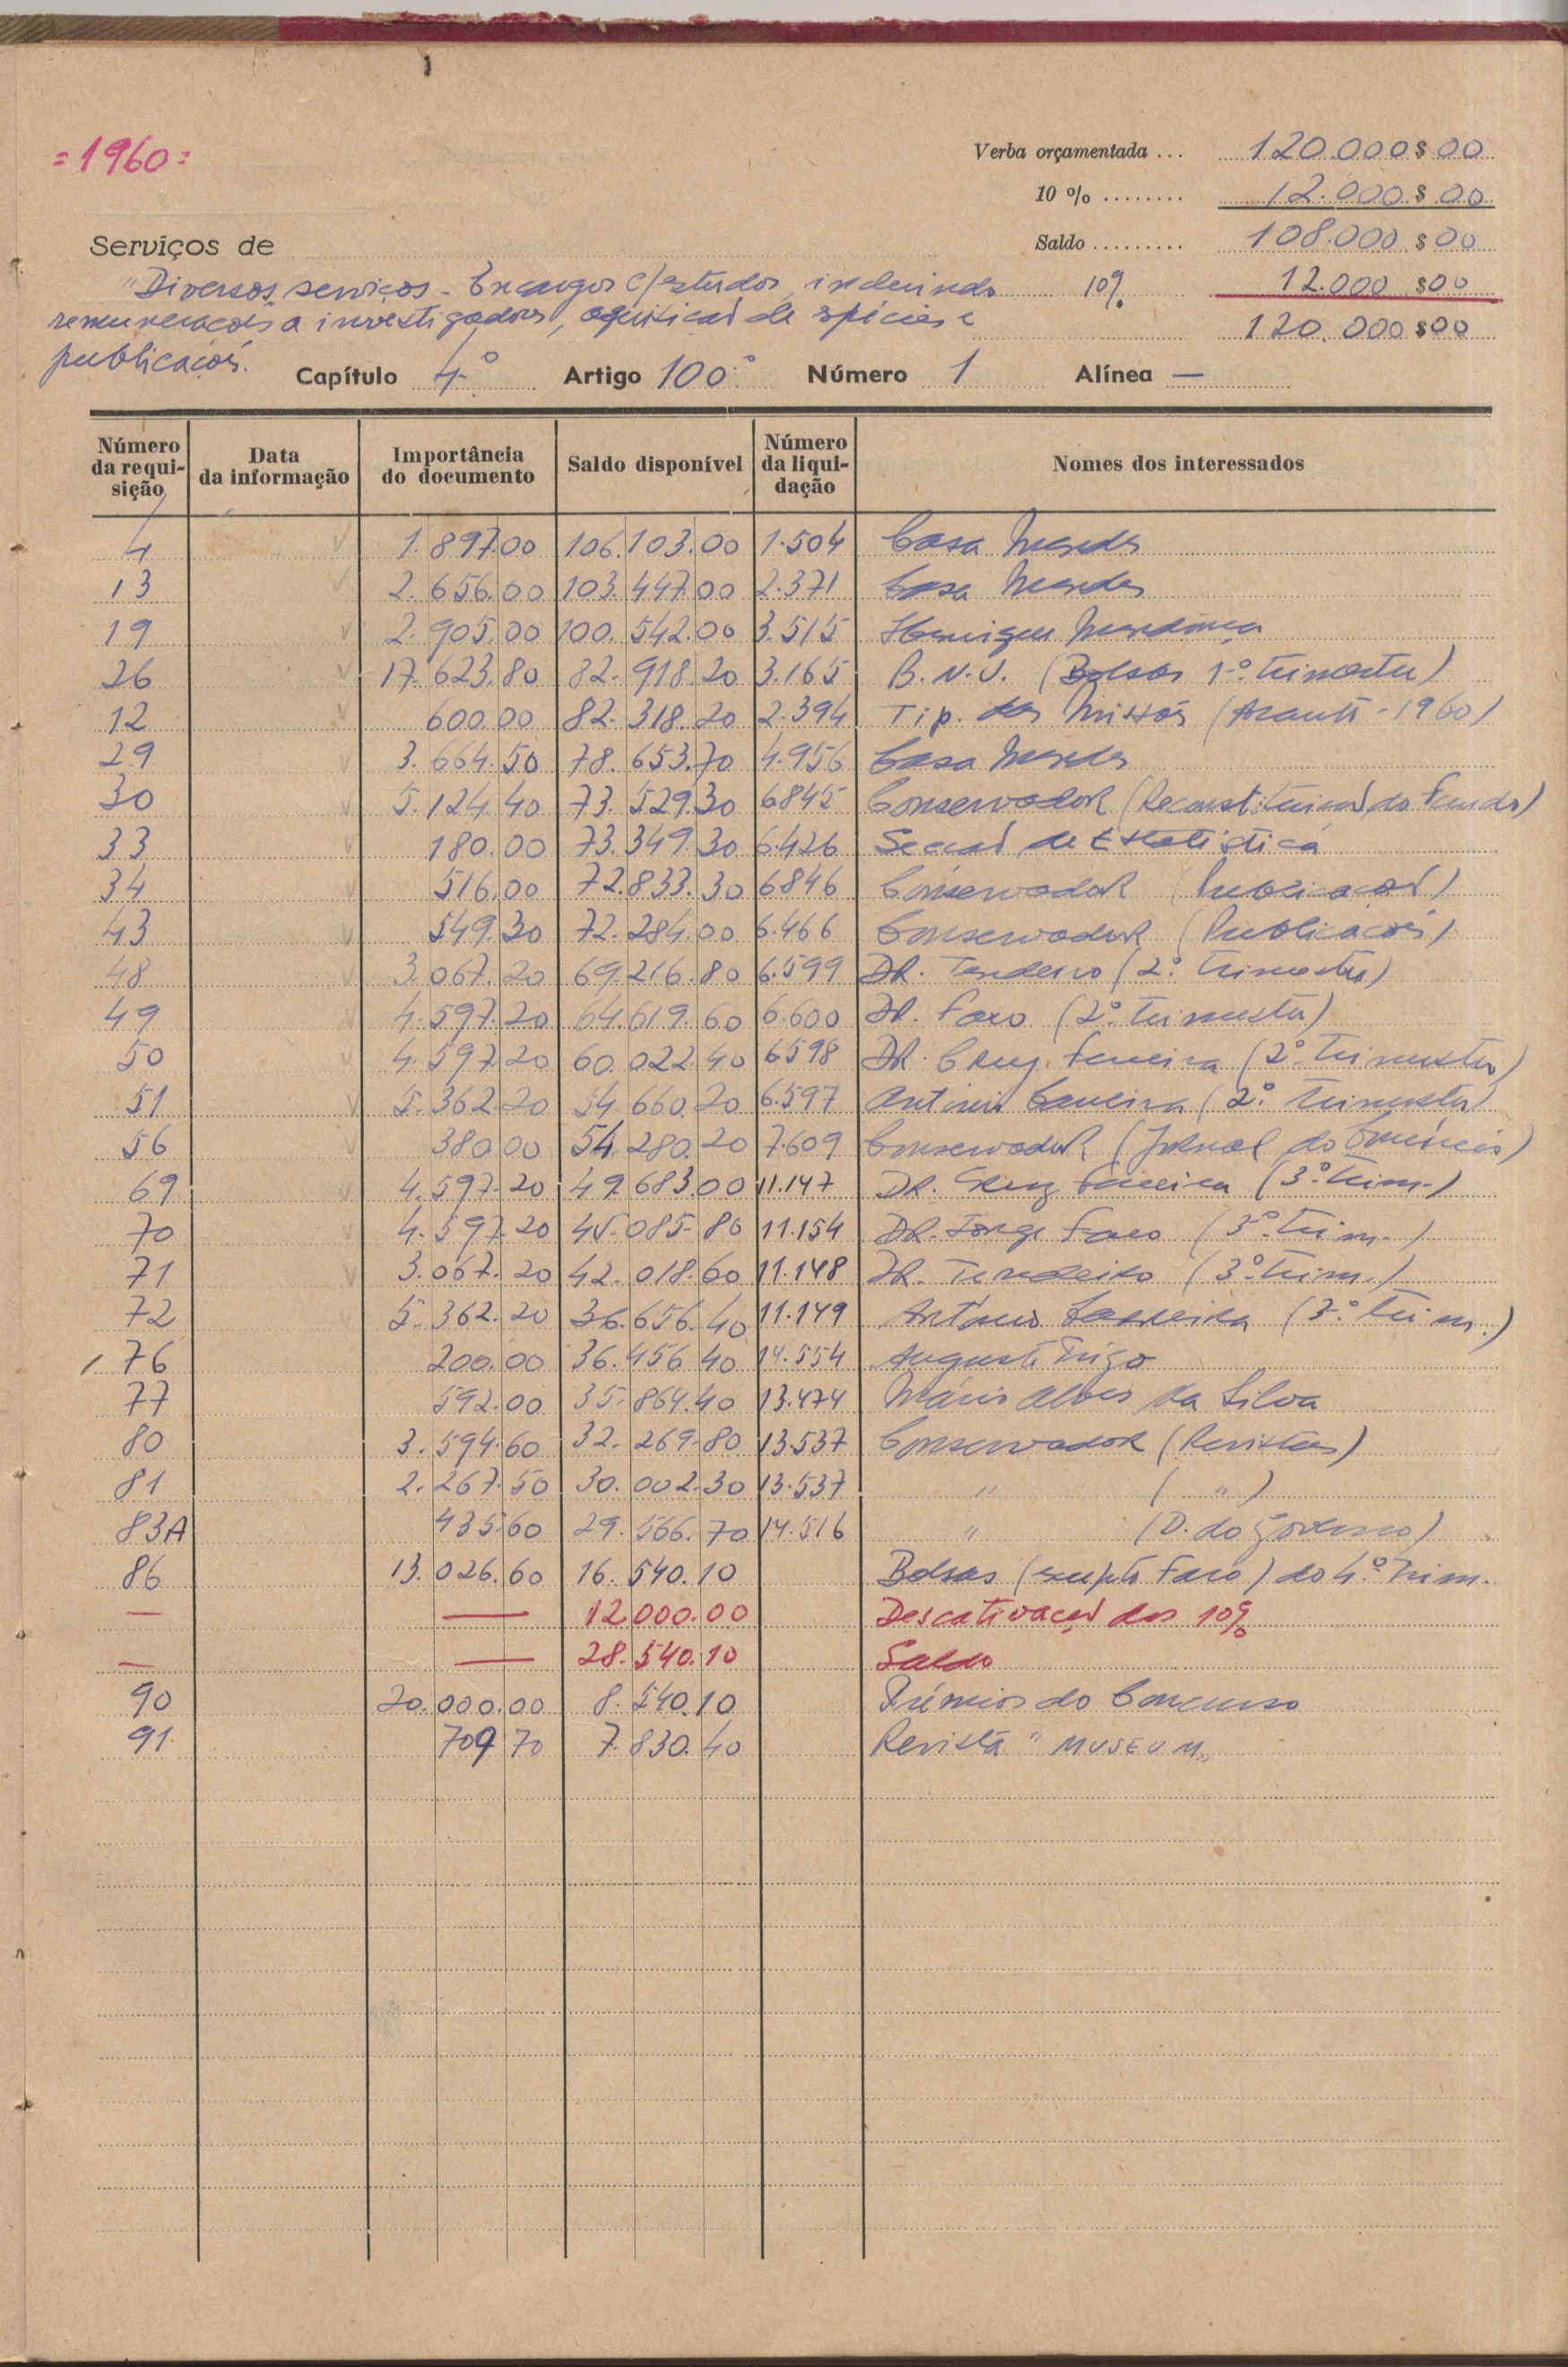 =1960=
Verba orçamentada ... 120.000$00
10 % ........ 12.000$00
Serviços de
Saldo ......... 108.000$00
"Diversos serviços - Encargos c/ estudos, incluindo 10% 12.000$00
remunerações a investigadores, aquisição de espécies e 120.000$00
publicações.
Capítulo 4º Artigo 100º Número 1 Alínea —
Número da requisição Data da informação Importância do documento Saldo disponível Número da liquidação Nomes dos interessados
4 1.897.00 106.103.00 1.504 Casa Mendes
13 2.656.00 103.447.00 2.371 Casa Mendes
19 2.905.00 100.542.00 3.515 Henrique Mendonça
26 17.623.80 82.918.20 3.165 B.N.U. (Bolsas 1º trimestre)
12 600.00 82.318.20 2.394 Tip. das Missões (1960)
29 3.664.50 78.653.70 4.956 Casa Mendes
30 5.124.40 73.529.30 6845 Conservador (Reconstituição do Fundo)
33 180.00 73.349.30 6.426 Secção de Estatística
34 516.00 72.833.30 6846 Conservador (Publicações)
43 549.30 72.284.00 6.466 Conservador (Publicações)
48 3.067.20 69.216.80 6.599 DR. Tendeiro (2º trimestre)
49 4.597.20 64.619.60 6.600 DR. Faro (2º trimestre)
50 4.597.20 60.022.40 6598 DR. Cruz Ferreira (2º trimestre)
51 5.362.20 54.660.20 6.597 António Carreira (2º trimestre)
56 380.00 54.280.20 7.609 Conservador (Jornal do Comércio)
69 4.597.20 49.683.00 11.147 DR. Cruz Ferreira (3º trim.)
70 4.597.20 45.085.80 11.154 DR. Jorge Faro (3º trim.)
71 3.067.20 42.018.60 11.148 DR. Tendeiro (3º trim.)
72 5.362.20 36.656.40 11.149 António Carreira (3º trim.)
76 200.00 36.456.40 14.554 Augusto Trigo
77 592.00 35.864.40 13.474 Mário Alves da Silva
80 3.594.60 32.269.80 13.537 Conservador (Revistas)
81 2.267.50 30.002.30 13.537 " ( " )
83A 435.60 29.566.70 14.516 " (D. do Governo)
86 13.026.60 16.540.10 Bolsas (excepto Faro) do 4º trim.
— — 12.000.00 Descativação dos 10%
— — 28.540.10 Saldo
90 20.000.00 8.540.10 Prémios do Concurso
91 709.70 7.830.40 Revista "MUSEUM"